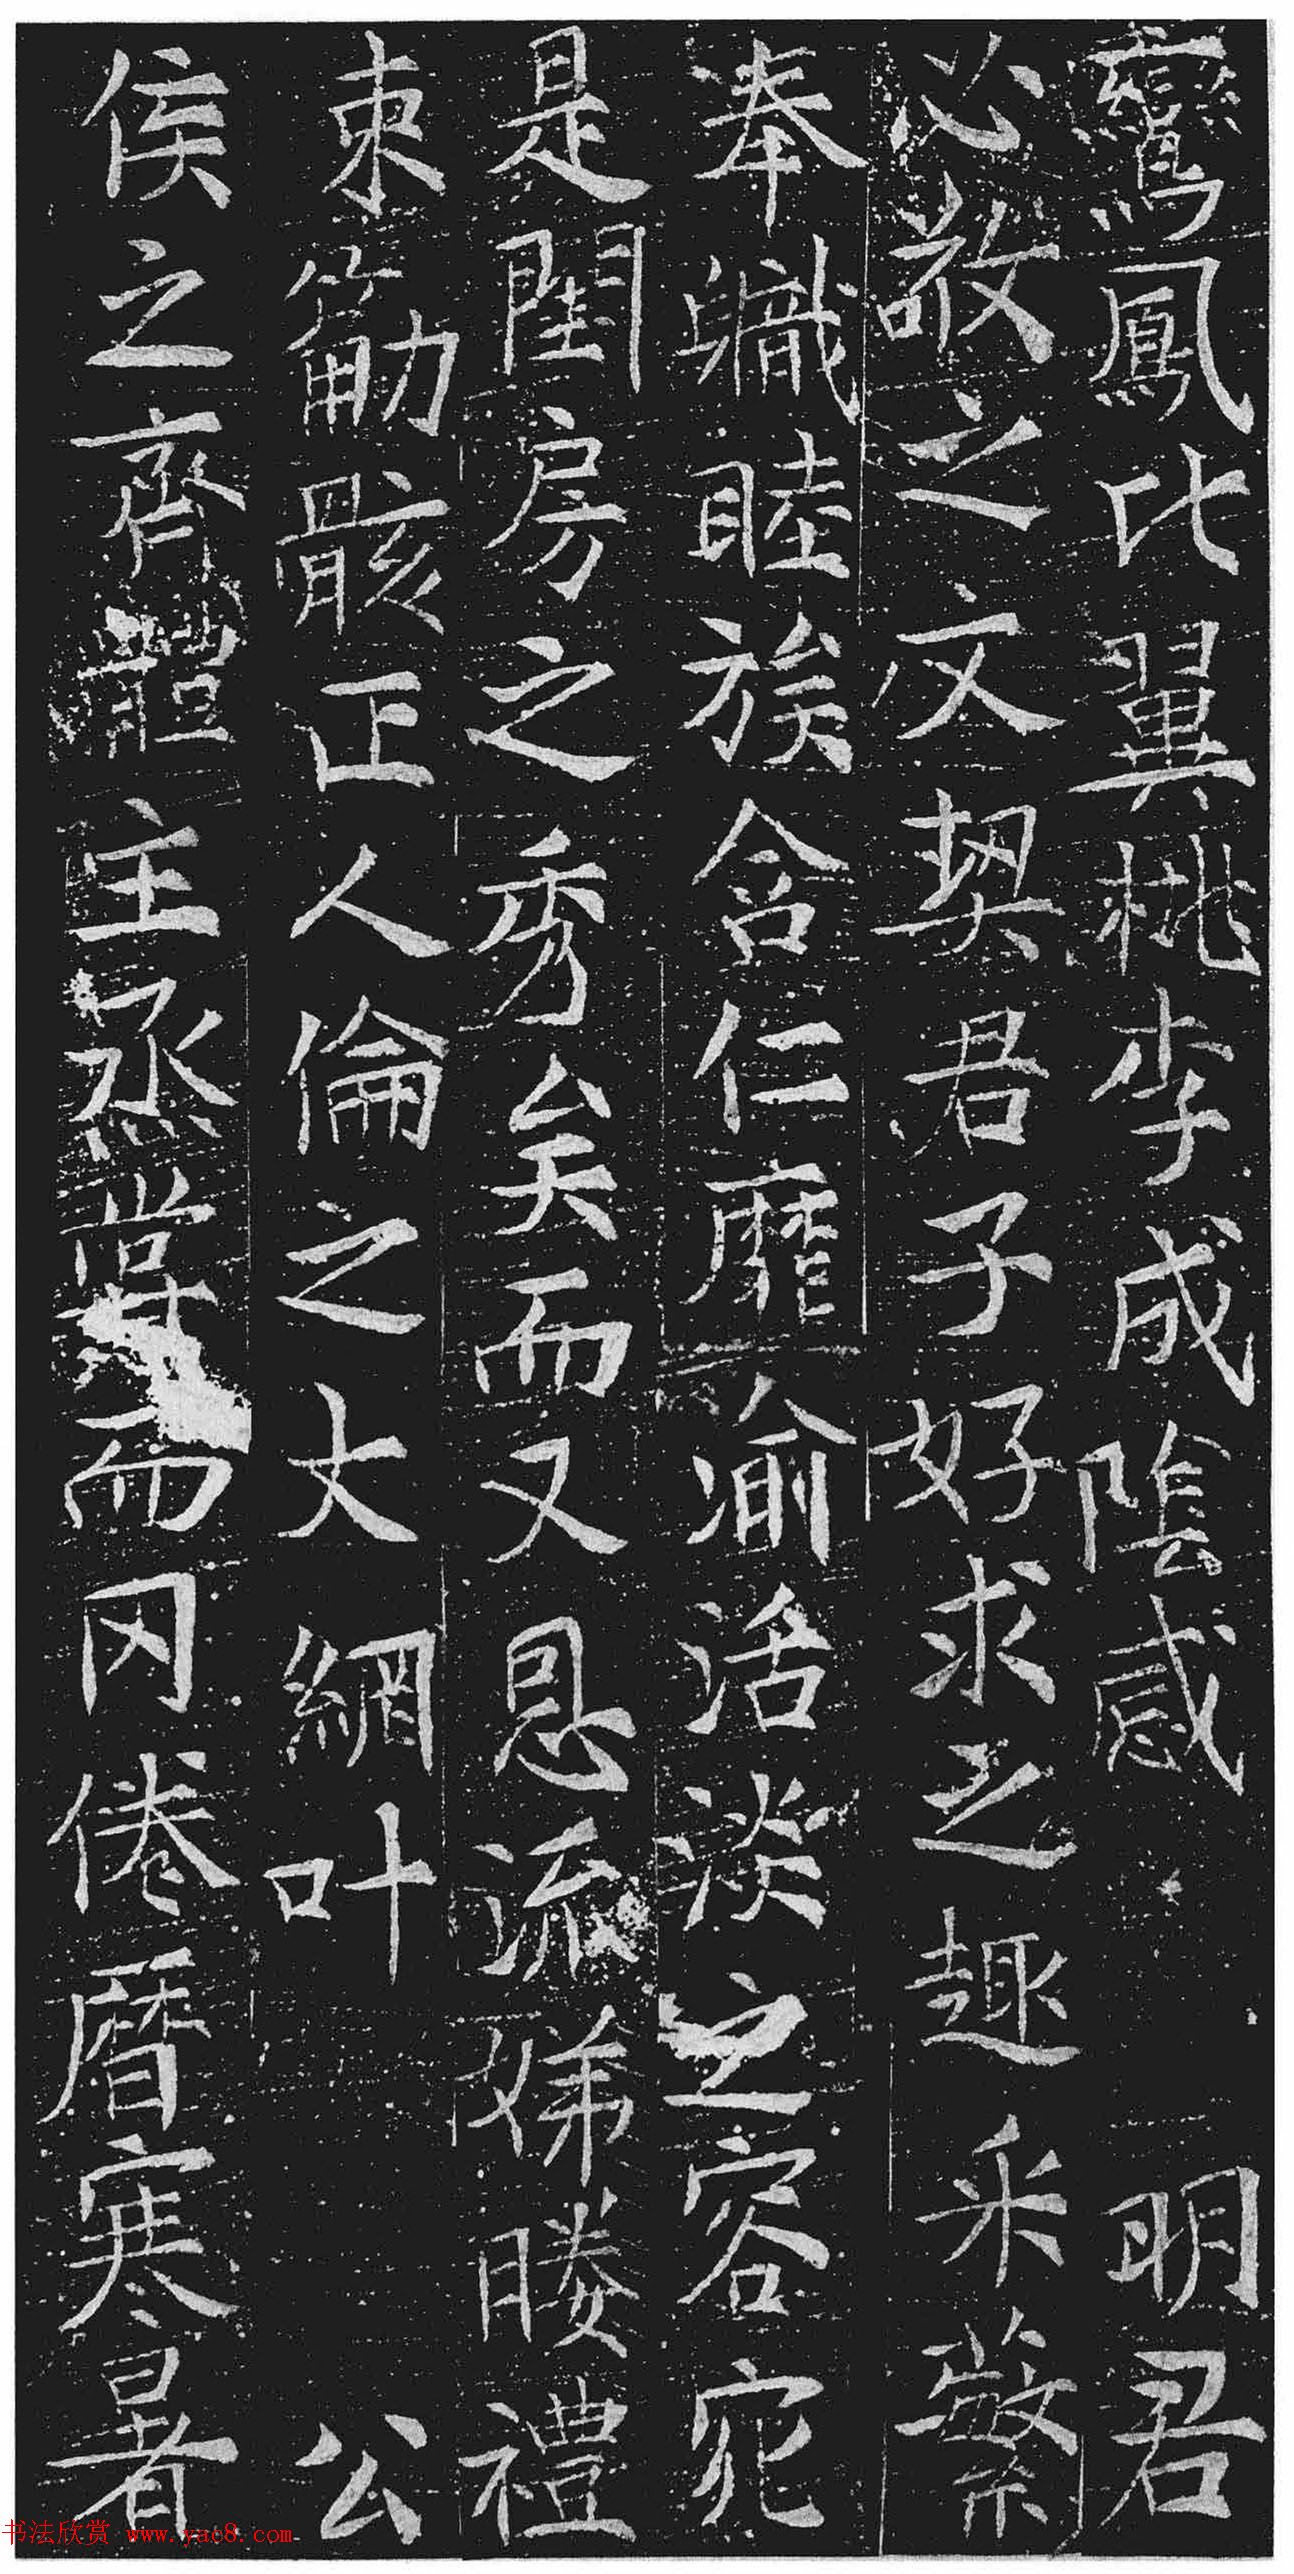 鸞鳳比翼桃李成陰感 明君
必敬之文契君子好求之趣采蘩
奉職睦族含仁靡渝活淡之容宛
是閨房之秀矣而又恩流娣媵禮
束筋骸正人倫之大綱叶 公
侯之齊體主烝嘗而罔倦曆寒暑
书法欣赏 www.yac8.com